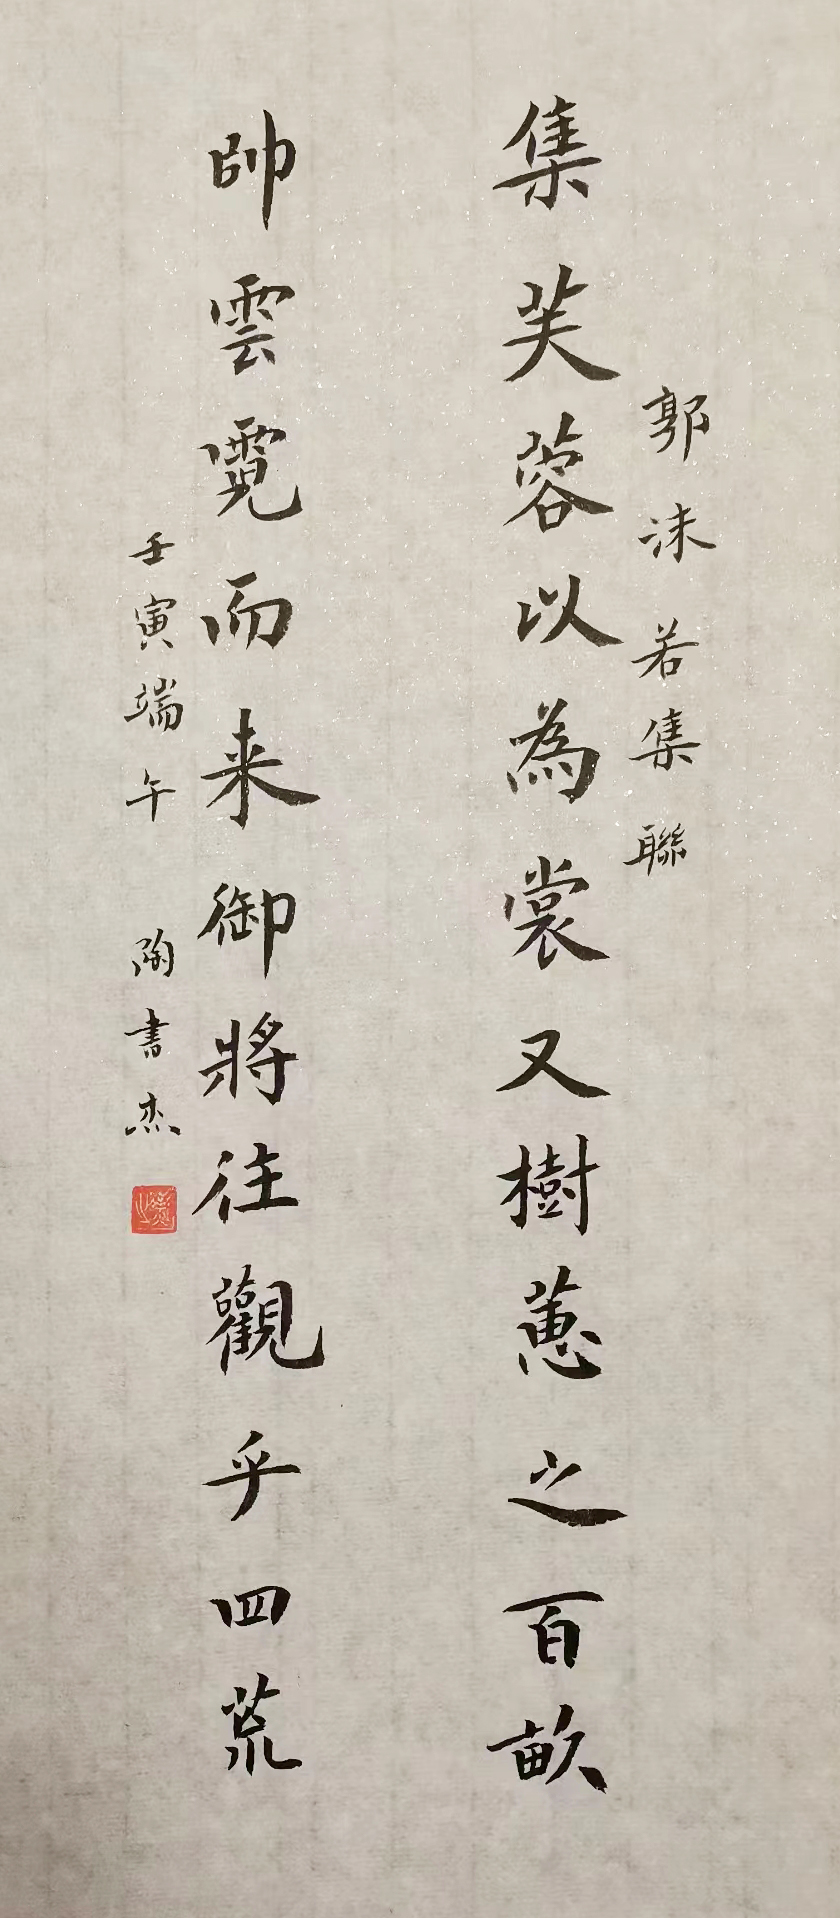 郭沫若集聯
集芙蓉以為裳又樹蕙之百畝
帥雲霓而来御將往觀乎四荒
壬寅端午 陶書杰